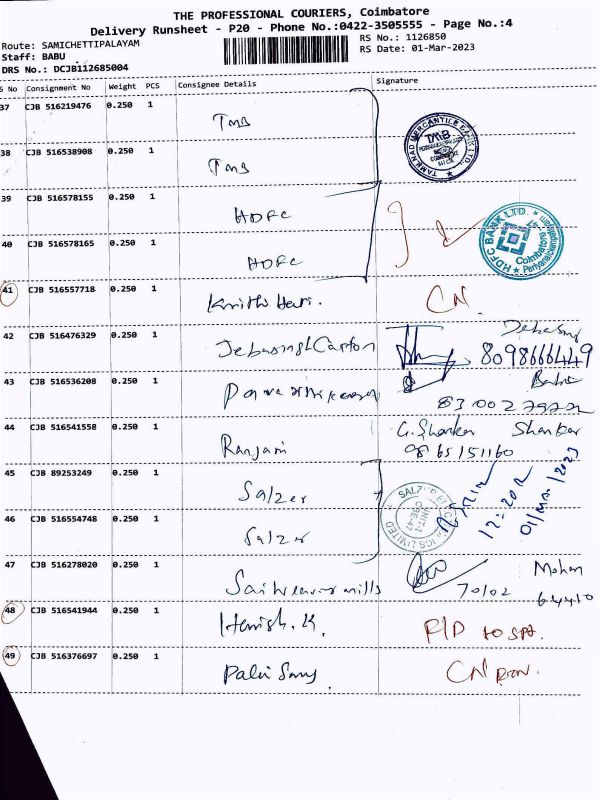 THE PROFESSIONAL COURIERS, Coimbatore
Delivery Runsheet - P20 - Phone No.:0422-3505555 - Page No.:4
Route: SAMICHETTIPALAYAM
RS No.: 1126850
Staff: BABU
RS Date: 01-Mar-2023
DRS No.: DCJB112685004
S No Consignment No Weight PCS Consignee Details Signature
37 CJB 516219476 0.250 1 TMB
TAMILNAD MERCANTILE BANK LTD. TMB
38 CJB 516538908 0.250 1 TMB
39 CJB 516578155 0.250 1 HDFC
HDFC BANK LTD. Coimbatore 47
40 CJB 516578165 0.250 1 HDFC
41 CJB 516557718 0.250 1 Krithi Hari. CN.
42 CJB 516476329 0.250 1 Jebasingh Carton 8098666449
43 CJB 516536208 0.250 1
44 CJB 516541558 0.250 1 Ranjani G. Shankar Shankar
9865151160
45 CJB 89253249 1 Salzer
0.250
12=20
01/Mar/2023
46 CJB 516554748 0.250 1 Salzer
47 CJB 516278020 0.250 1 mills Mohan
70102 64410
48 CJB 516541944 0.250 1 Harish. K.
49 CJB 516376697 0.250 1 CN